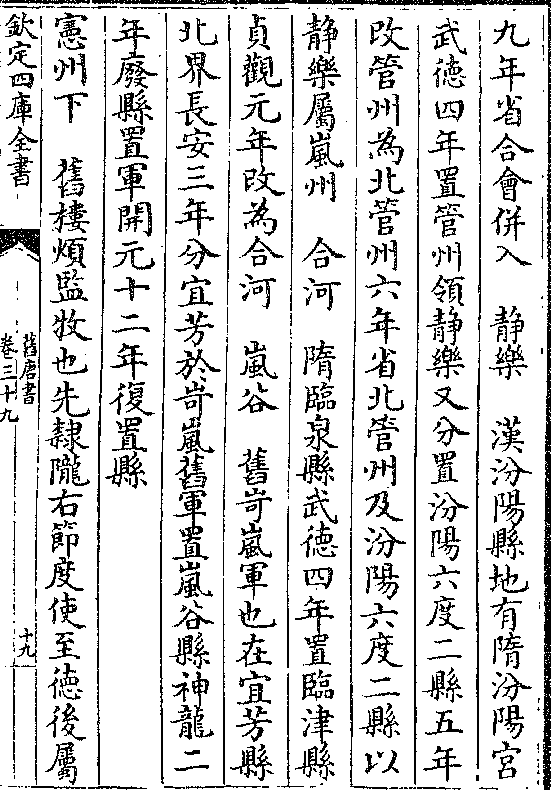 九年省合會併入　靜樂　漢汾陽縣地有隋汾陽宫
武德四年置管州領靜樂又分置汾陽六度二縣五年
改管州為北管州六年省北管州及汾陽六度二縣以
靜樂屬嵐州　合河　隋臨泉縣武德四年置臨津縣
貞觀元年改為合河　嵐谷　舊岢嵐軍也在宜芳縣
北界長安三年分宜芳於岢嵐舊軍置嵐谷縣神龍二
年廢縣置軍開元十二年復置縣
憲州下　舊樓煩監牧也先隸隴右節度使至徳後屬
欽定四庫全書
舊唐書
卷三十九
十九